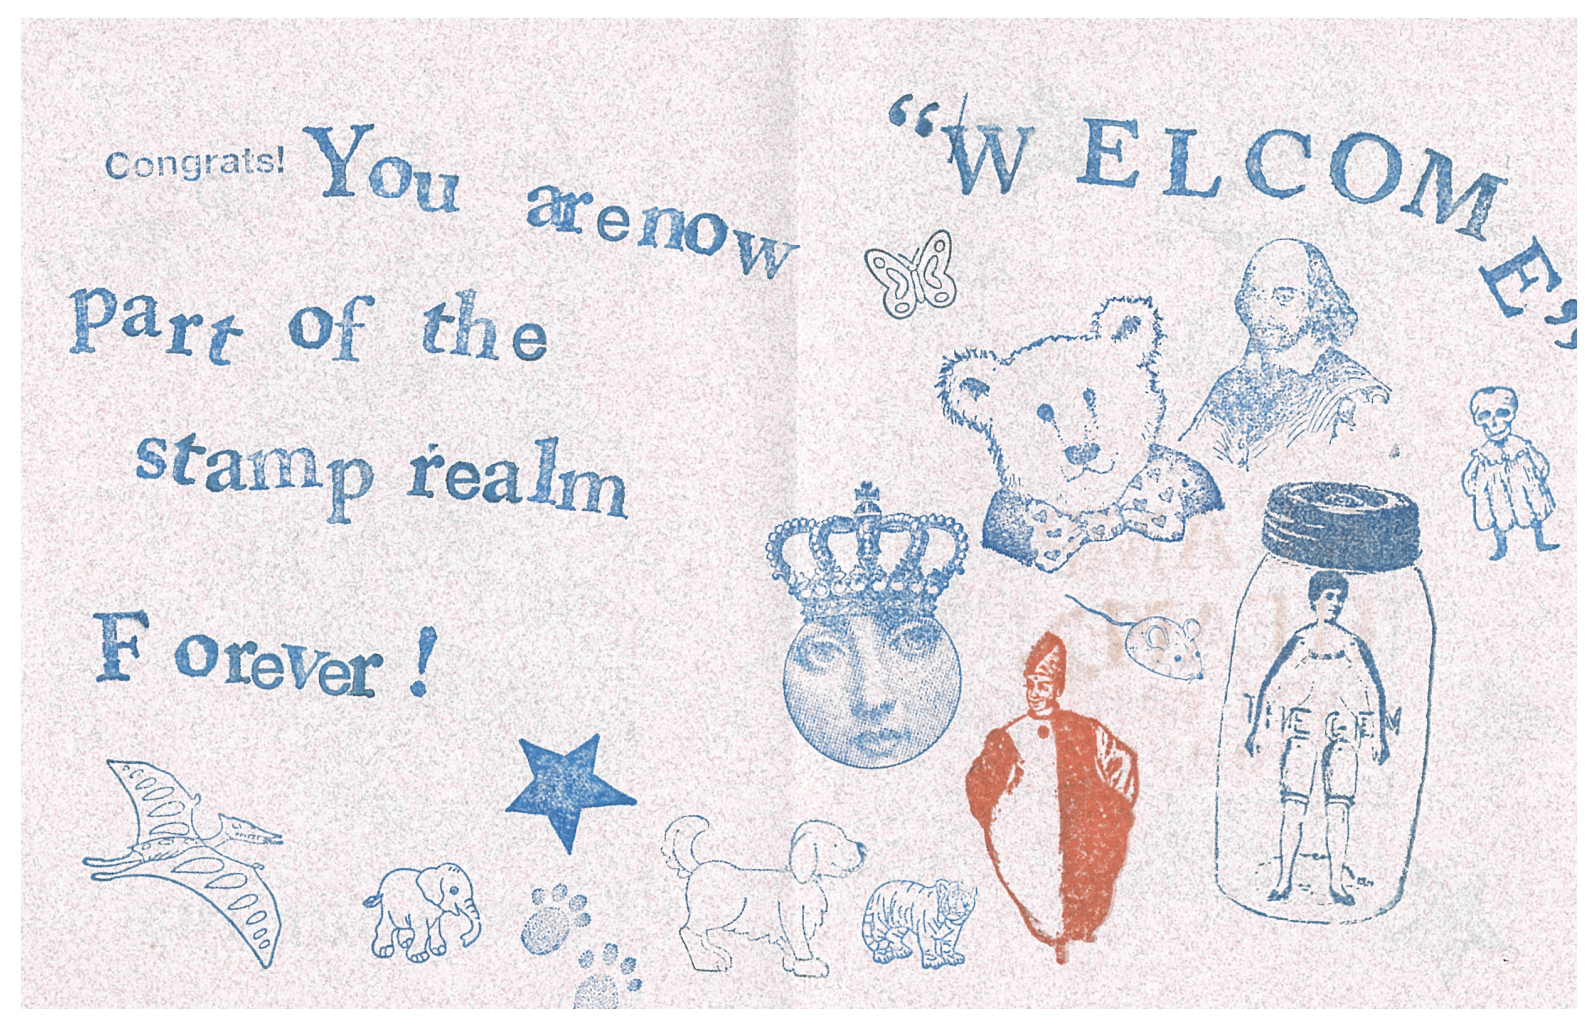 Congrats! You are now
part of the
stamp realm
Forever!
“WELCOME”
THE GEM